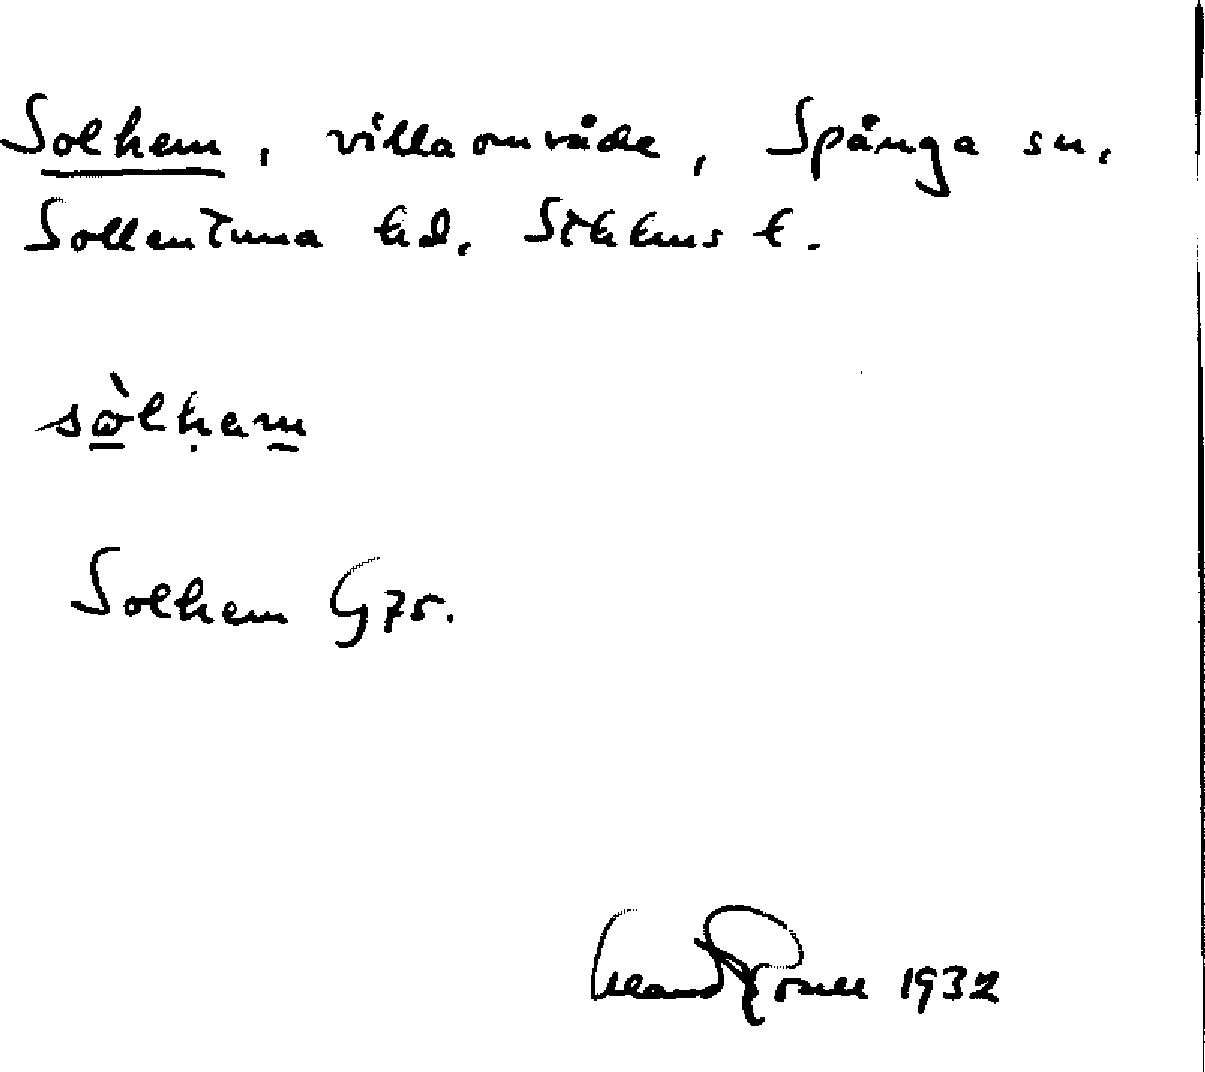 Solhem, villaområde, Spånga sn,
Sollentuna hd, Sthlms l.
sòlhem
Solhem G75.
1932